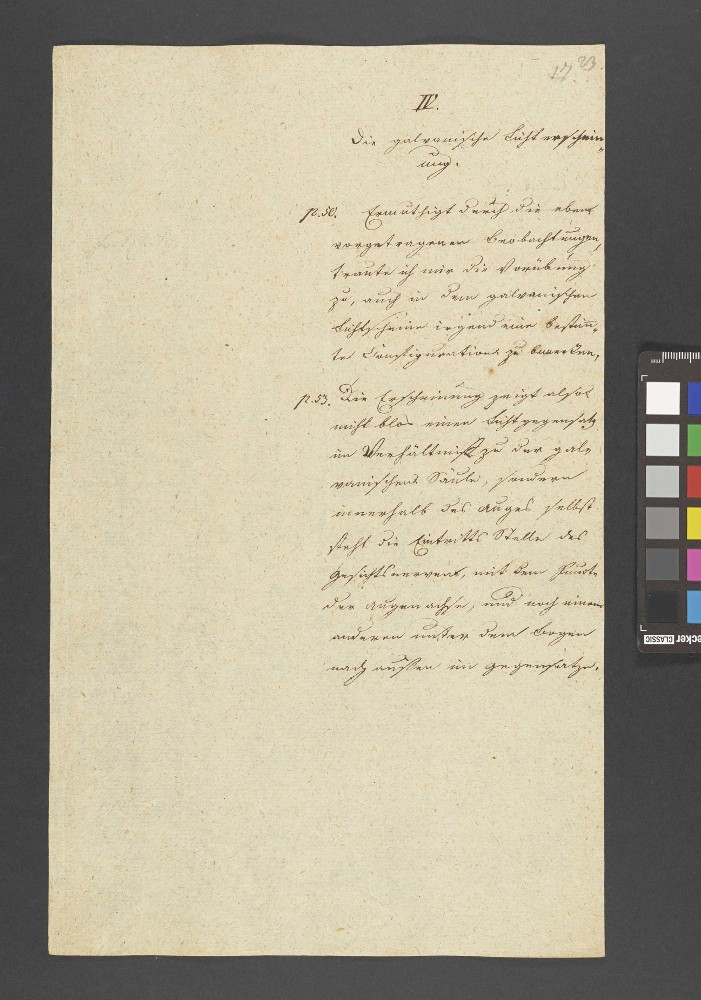 17 23
IV.
Die galvanische Lichterschein=
ung.
p. 50. Ermuthigt durch die eben
vorgetragenen Beobachtungen,
traute ich mir die Vorübung
zu, auch in dem galvanischen
Lichtscheine irgend eine bestim̄=
te Configuration zu bemerken,
p. 53. Die Erscheinung zeigt also
nicht blos einen Lichtgegensatz
im Verhältniß zu der gal=
vanischen Säule, sondern
innerhalb des Auges selbst
steht die Eintritts Stelle des
Gesichtsnerven, mit dem Punkte
der Augenachse, und noch einem
anderen unter dem Bogen
nach außen im Gegensatze.